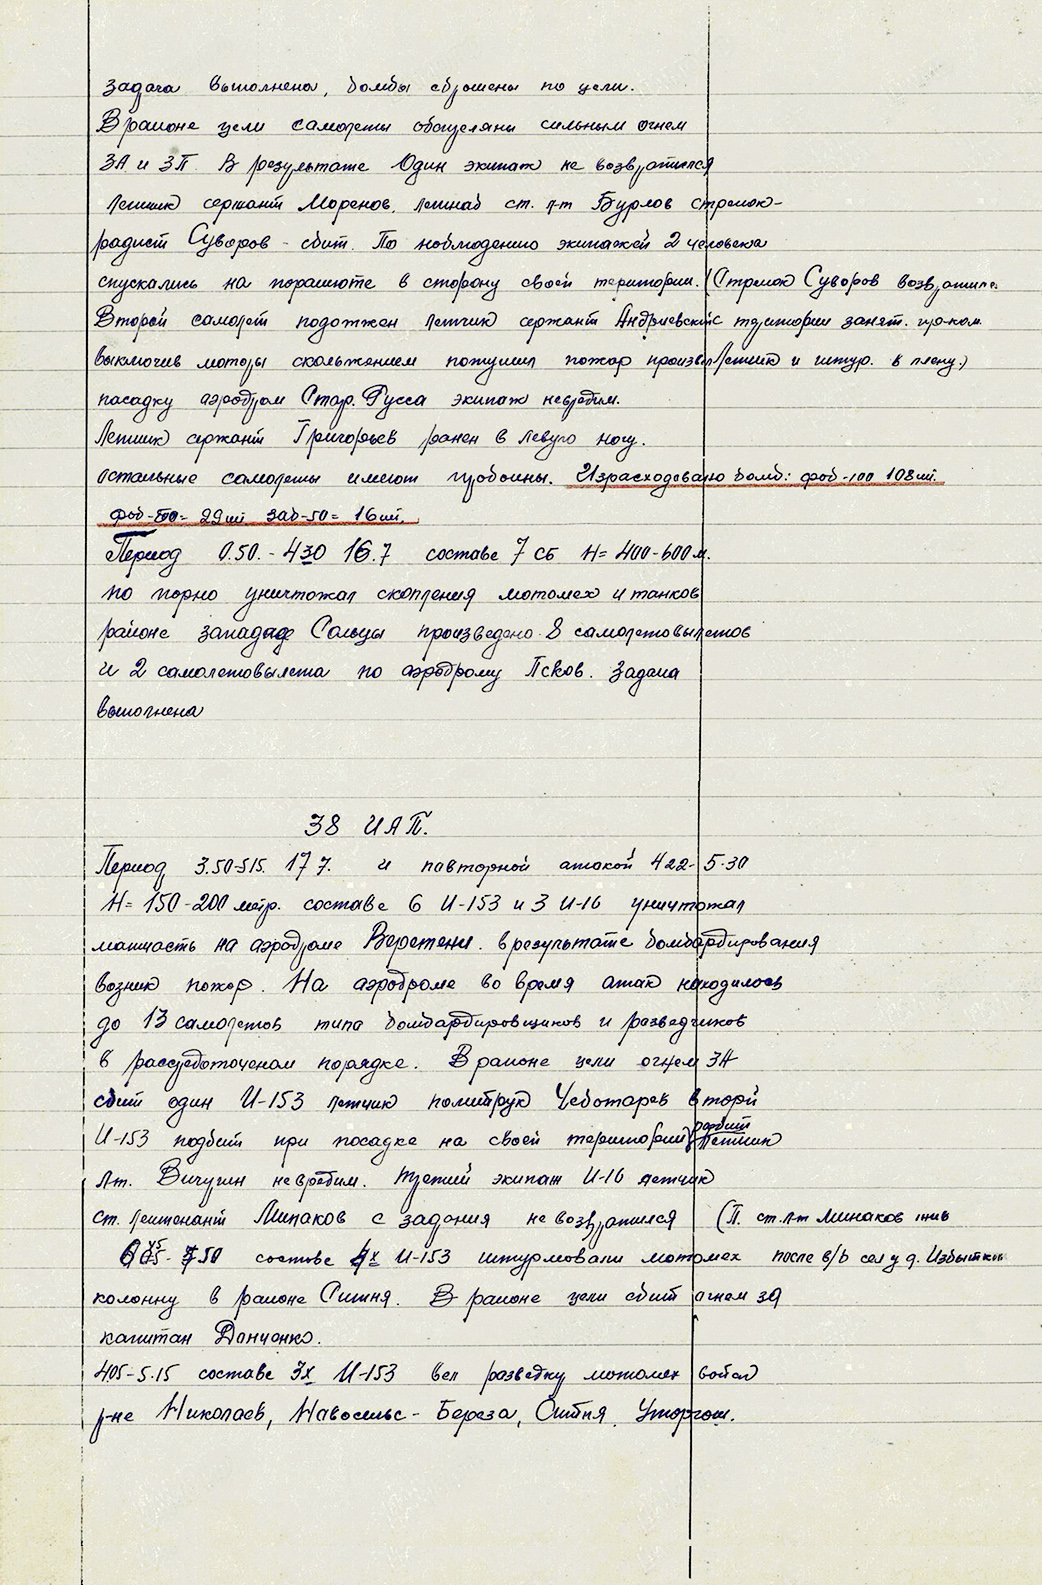 задача выполнена, бомбы сброшены по цели.
В районе цели самолеты обстреляны сильным огнем
ЗА и ЗП В результате Один экипаж не возвратился
летчик сержант Моренов, летнаб ст. л-т Бурлов стрелок-
радист Суворов - сбит. По наблюдению экипажей 2 человека
спускались на парашюте в сторону своей територии. (Стрелок Суворов возвратился
Второй самолет подожжен летчик сержант Андриевский с територии занят. пр-ком.
выключив моторы скольжением потушил пожар произвел Летчик и штур. в плену.)
посадку аэродром Стар. Русса экипаж невредим.
Летчик сержант Григорьев ранен в левую ногу.
остальные самолеты имеют пробоины. Израсходовано бомб: фаб-100 108 шт.
фаб-50= 29 шт заб-50= 16 шт.
Период 0.50.-430 16.7 составе 7 СБ Н= 400-600 м.
по парно уничтожал скопления мотомех и танков
районе западнее Сольцы произведено 8 самолетовылетов
и 2 самолетовылета по аэродрому Псков. Задача
выполнена
38 ИАП.
Период 3.50-515. 17 7. и повторной атакой 422-5-30
Н= 150-200 метр. составе 6 И-153 и 3 И-16 уничтожал
матчасть на аэродроме Веретени. в результате бомбардирования
возник пожар. На аэродроме во время атак находилось
до 13 самолетов типа бомбардировщиков и разведчиков
в рассредоточеном порядке. В районе цели огнем ЗА
сбит один И-153 летчик политрук Чеботарев вторй
И-153 подбит при посадке на своей територии разбит летчик
лт. Вичугин невредим. третий экипаж И-16 летчик
ст. лейтенант Минаков с задания не возвратился (Л. ст. л-т Минаков жив
750 составе 4х И-153 штурмовали мотомех после в/в сел у д. Избытков
колонну в районе Ситня. В районе цели сбит огнем за
капитан Данченко.
405-5.15 составе 3х И-153 вел разведку мотомех войск
р-не Николаев, Навосельс- Береза, Ситня, Уторгош.